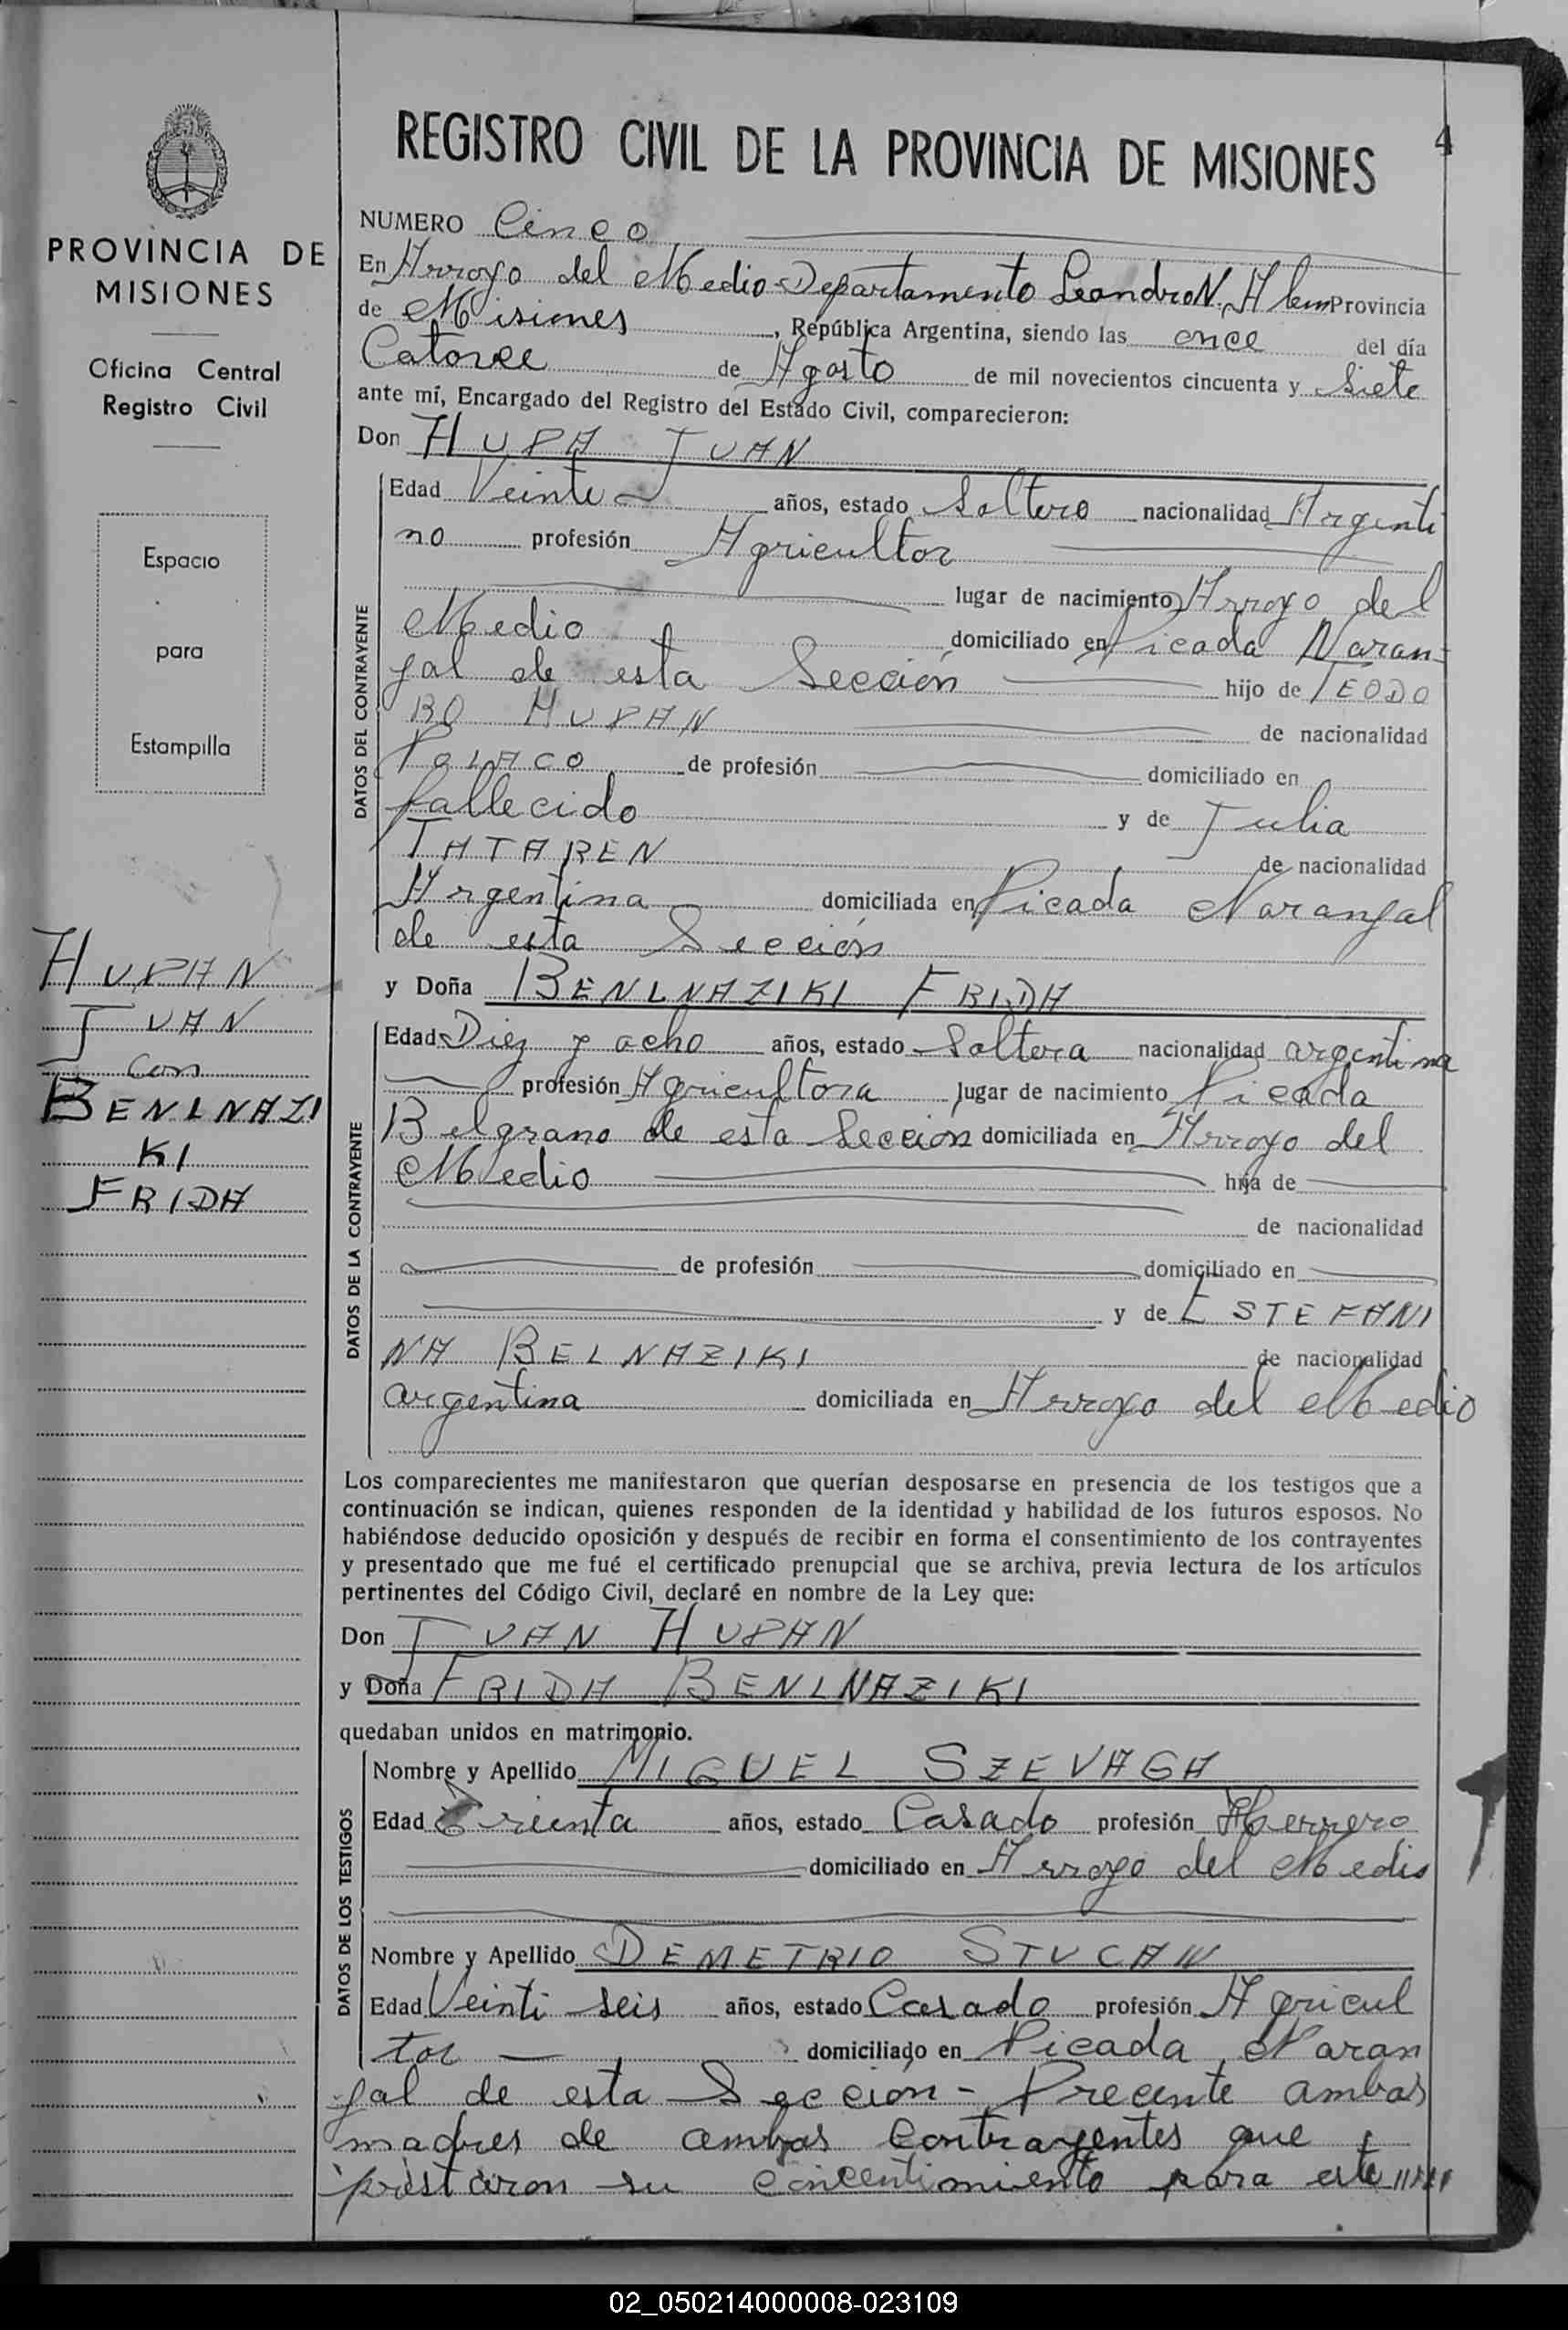 REGISTRO CIVIL DE LA PROVINCIA DE MISIONES
4
PROVINCIA DE
MISIONES
Oficina Central
Registro Civil
Espacio
para
Estampilla
HUPAN
JUAN
con
BENLNAZI
KI
FRIDA
NUMERO Cinco
En Arroyo del Medio-Departamento Leandro N. Alem Provincia
de Misiones, República Argentina, siendo las once del día
Catorce de Agosto de mil novecientos cincuenta y Siete
ante mí, Encargado del Registro del Estado Civil, comparecieron:
Don HUPA JUAN
DATOS DEL CONTRAYENTE
Edad Veinte años, estado Soltero nacionalidad Argenti
no profesión Agricultor
lugar de nacimiento Arroyo del
Medio domiciliado en Picada Naran=
jal de esta Sección hijo de TEODO
RO HUPAN de nacionalidad
POLACO de profesión domiciliado en
fallecido y de Julia
TATAREN de nacionalidad
Argentina domiciliada en Picada Naranjal
de esta Sección
y Doña BENLNAZIKI FRIDA
DATOS DE LA CONTRAYENTE
Edad Diez y ocho años, estado Soltera nacionalidad argentina
profesión Agricultora lugar de nacimiento Picada
Belgrano de esta Seccion domiciliada en Arroyo del
Medio hija de
de nacionalidad
de profesión domiciliado en
y de ESTEFANI
NA BELNAZIKI de nacionalidad
argentina domiciliada en Arroyo del Medio
Los comparecientes me manifestaron que querían desposarse en presencia de los testigos que a
continuación se indican, quienes responden de la identidad y habilidad de los futuros esposos. No
habiéndose deducido oposición y después de recibir en forma el consentimiento de los contrayentes
y presentado que me fué el certificado prenupcial que se archiva, previa lectura de los artículos
pertinentes del Código Civil, declaré en nombre de la Ley que:
Don JUAN HUPAN
y Doña FRIDA BENLNAZIKI
quedaban unidos en matrimonio.
DATOS DE LOS TESTIGOS
Nombre y Apellido MIGUEL SZEVAGA
Edad Treinta años, estado Casado profesión Herrero
domiciliado en Arroyo del Medio
Nombre y Apellido DEMETRIO STUCAN
Edad Veinti seis años, estado Casado profesión Agricul
tor domiciliado en Picada Naran
jal de esta Sección - Precente ambas
madres de ambos Contrayentes que
prestaron su concentimiento para este
02_050214000008-023109